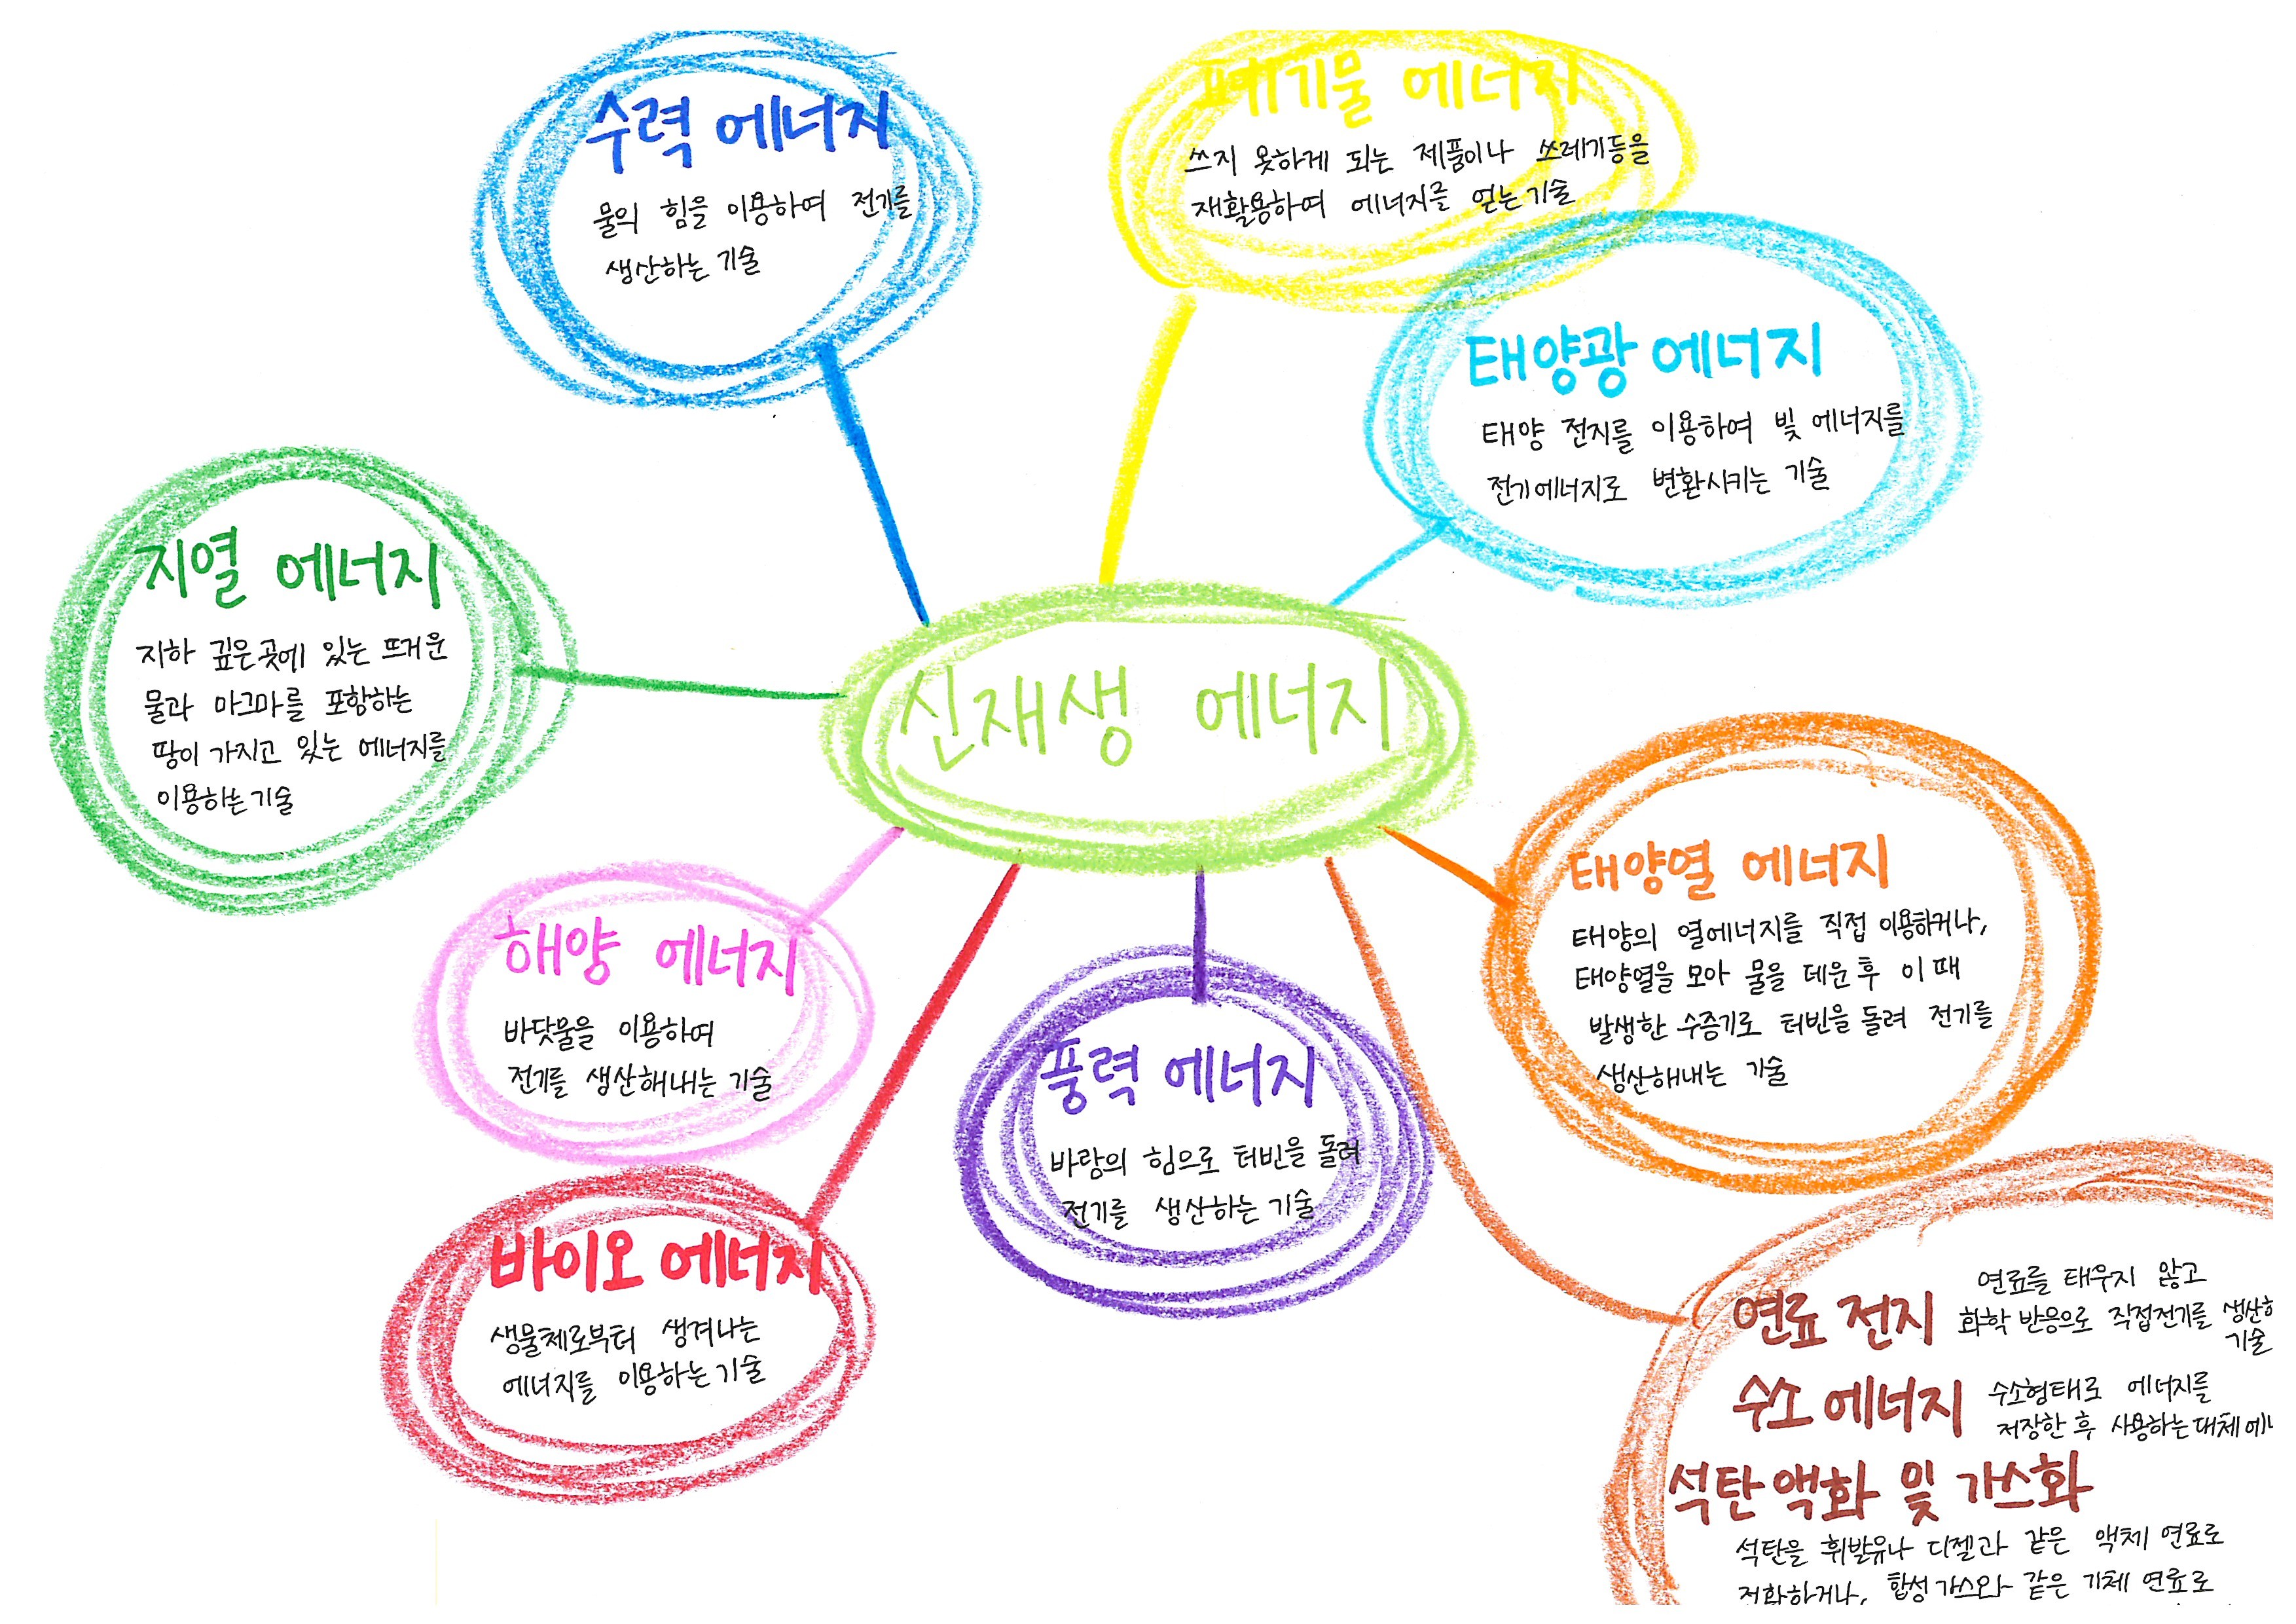 수력 에너지
물의 힘을 이용하여 전기를
생산하는 기술
폐기물 에너지
쓰지 못하게 되는 제품이나 쓰레기등을
재활용하여 에너지를 얻는 기술
태양광 에너지
태양 전지를 이용하여 빛 에너지를
전기에너지로 변환시키는 기술
지열 에너지
지하 깊은곳에 있는 뜨거운
물과 마그마를 포함하는
땅이 가지고 있는 에너지를
이용하는 기술
신재생 에너지
태양열 에너지
태양의 열에너지를 직접 이용하거나,
태양열을 모아 물을 데운 후 이 때
발생한 수증기로 터빈을 돌려 전기를
생산해내는 기술
해양 에너지
바닷물을 이용하여
전기를 생산해내는 기술
풍력 에너지
바람의 힘으로 터빈을 돌려
전기를 생산하는 기술
바이오 에너지
생물체로부터 생겨나는
에너지를 이용하는 기술
연료 전지
연료를 태우지 않고
화학 반응으로 직접전기를
기술
수소 에너지
수소형태로 에너지를
저장한 후 사용하는 대체
석탄 액화 및 가스화
석탄을 휘발유나 디젤과 같은 액체 연료로
전환하거나, 합성가스와 같은 기체 연료로